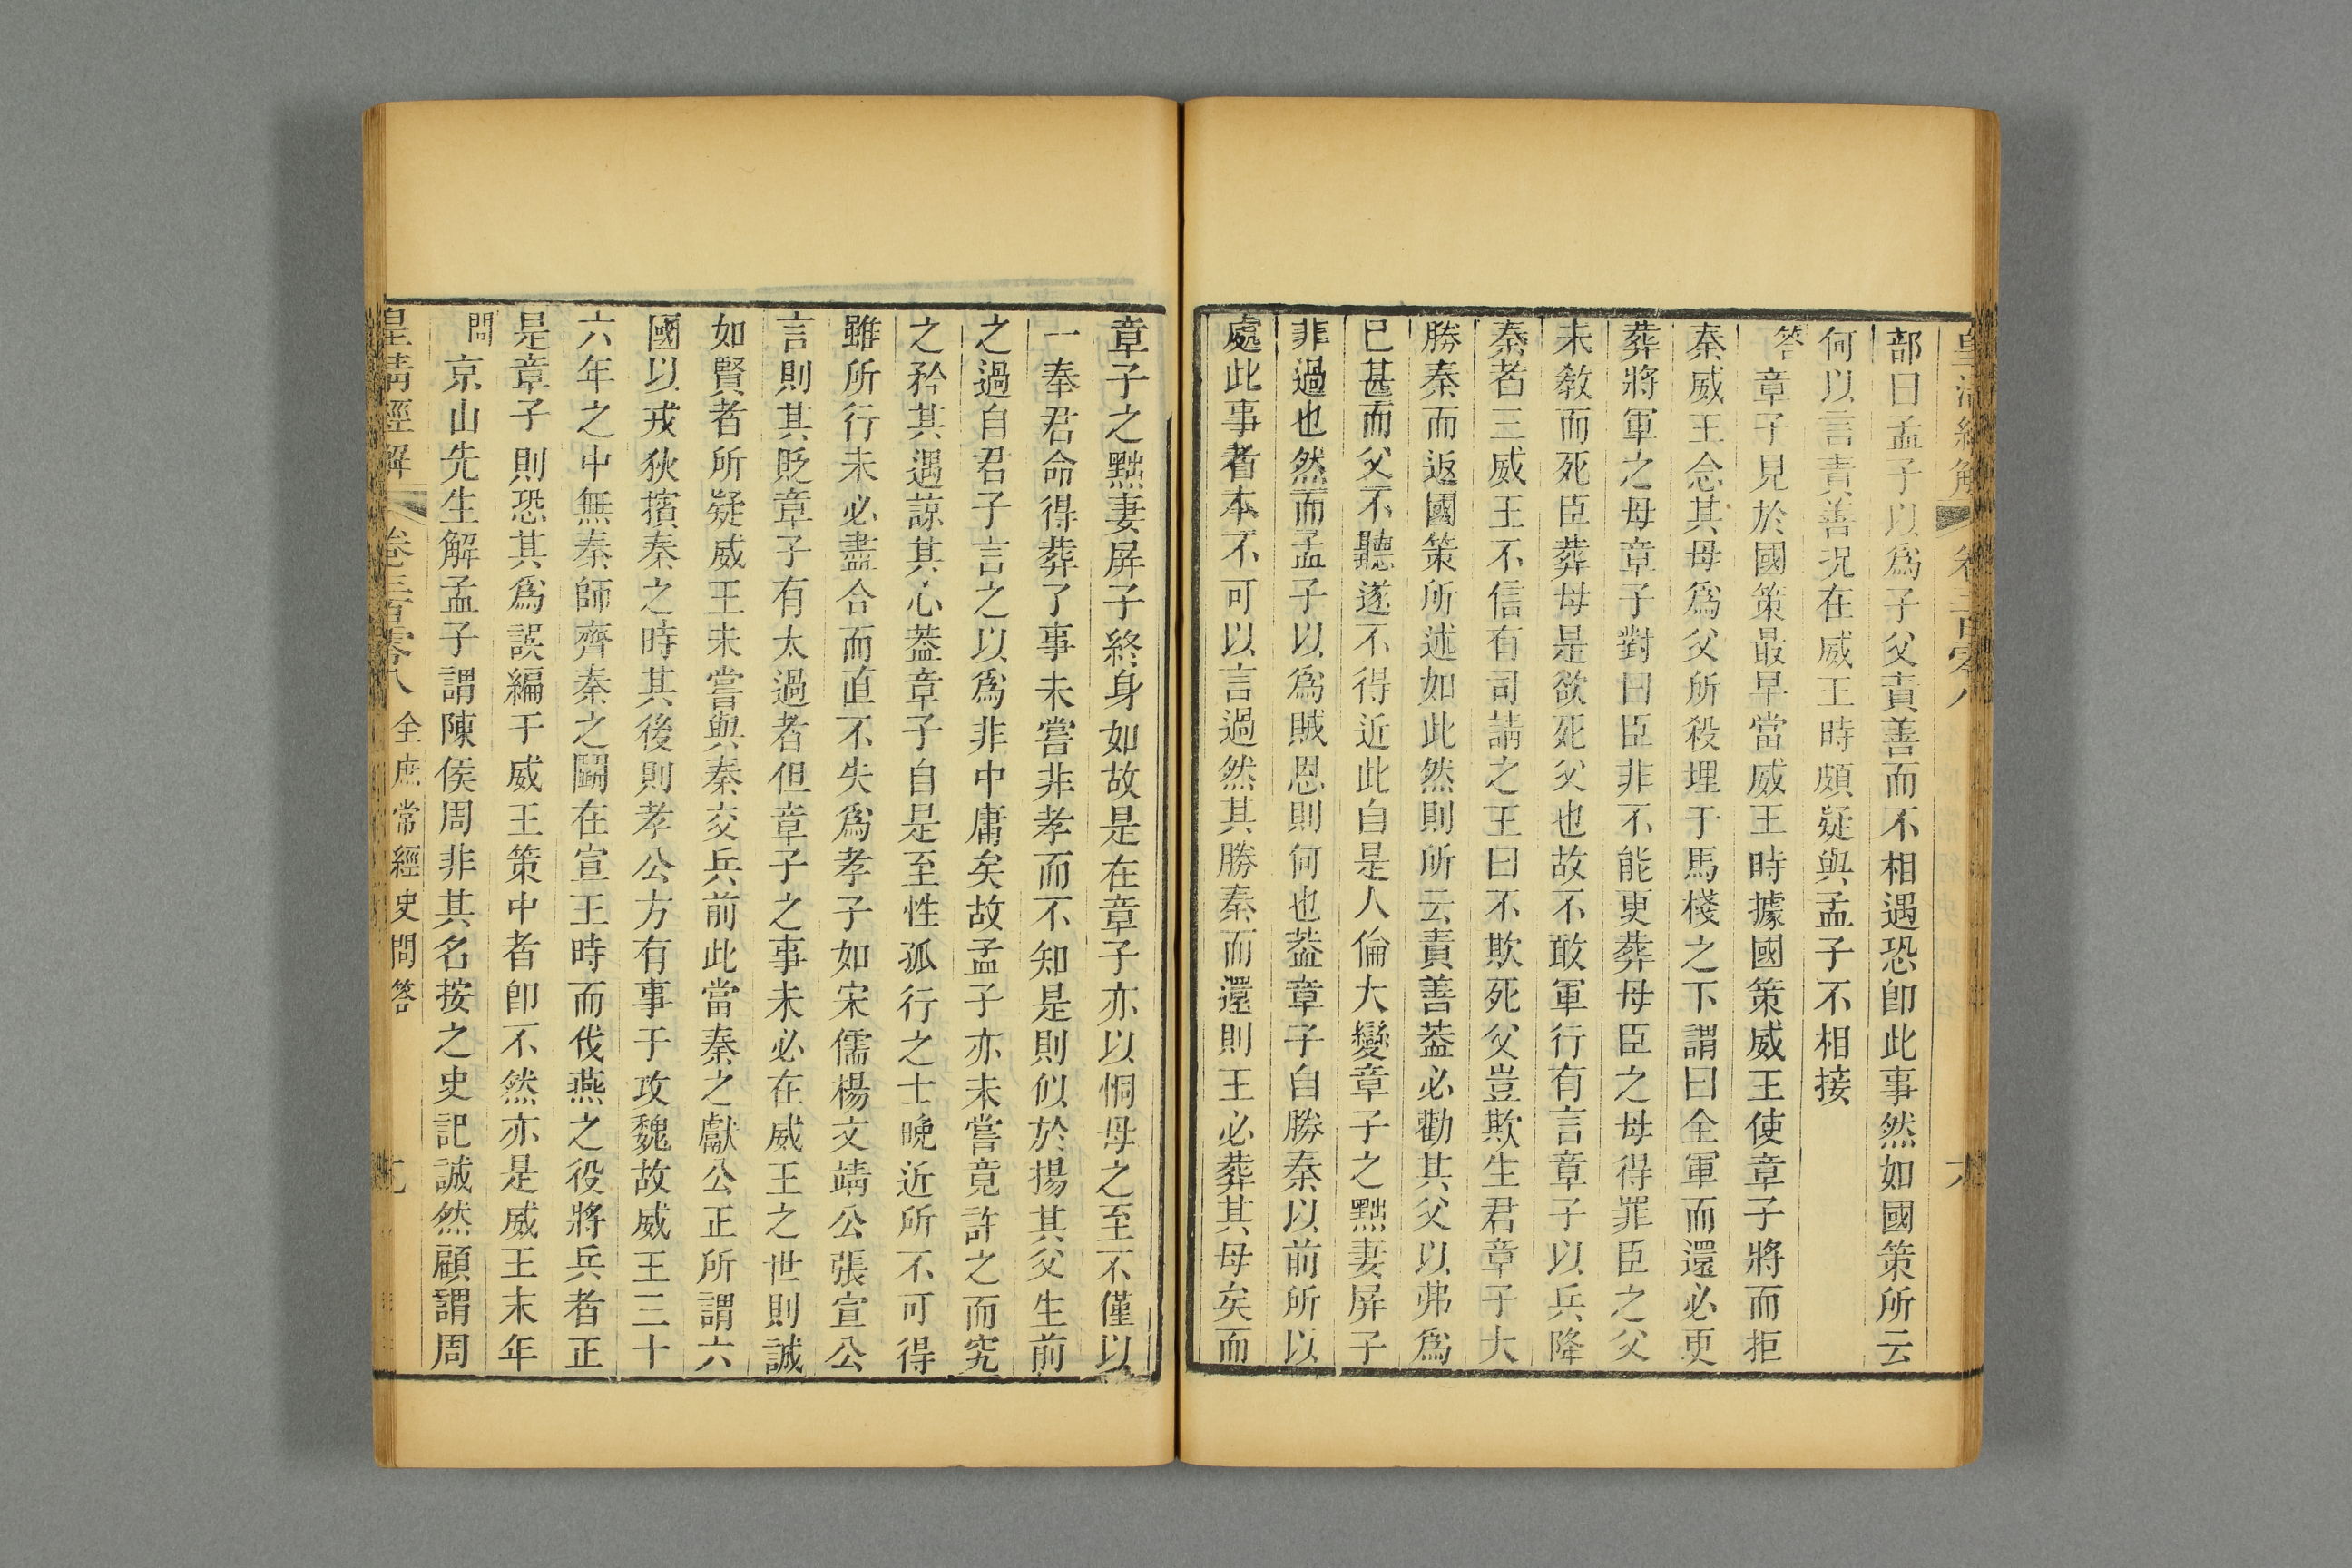 皇清經解
卷三百零八
部曰孟子以爲子父責善而不相遇恐卽此事然如國策所云
何以言責善況在威王時頗疑與孟子不相接
答章子見於國策最早當威王時據國策威王使章子將而拒
秦威王念其母爲父所殺埋于馬棧之下謂曰全軍而還必更
葬將軍之母章子對曰臣非不能更葬母臣之母得罪臣之父
未敎而死臣葬母是欲死父也故不敢軍行有言章子以兵降
秦者三威王不信有司請之王曰不欺死父豈欺生君章子大
勝秦而返國策所述如此然則所云責善葢必勸其父以弗爲
已甚而父不聽遂不得近此自是人倫大變章子之黜妻屏子
非過也然而孟子以爲賊恩則何也葢章子自勝秦以前所以
處此事者本不可以言過然其勝秦而還則王必葬其母矣而
章子之黜妻屏子終身如故是在章子亦以恫母之至不僅以
一奉君命得葬了事未嘗非孝而不知是則似於揚其父生前
之過自君子言之以爲非中庸矣故孟子亦未嘗竟許之而究
之矜其遇諒其心葢章子自是至性孤行之士晚近所不可得
雖所行未必盡合而直不失爲孝子如宋儒楊文靖公張宣公
言則其貶章子有太過者但章子之事未必在威王之世則誠
如賢者所疑威王未嘗與秦交兵前此當秦之獻公正所謂六
國以戎狄擯秦之時其後則孝公方有事于攻魏故威王三十
六年之中無秦師齊秦之鬭在宣王時而伐燕之役將兵者正
是章子則恐其爲誤編于威王策中者卽不然亦是威王末年
問京山先生解孟子謂陳侯周非其名按之史記誠然顧謂周
皇清經解
卷三百零八
全庶常經史問答